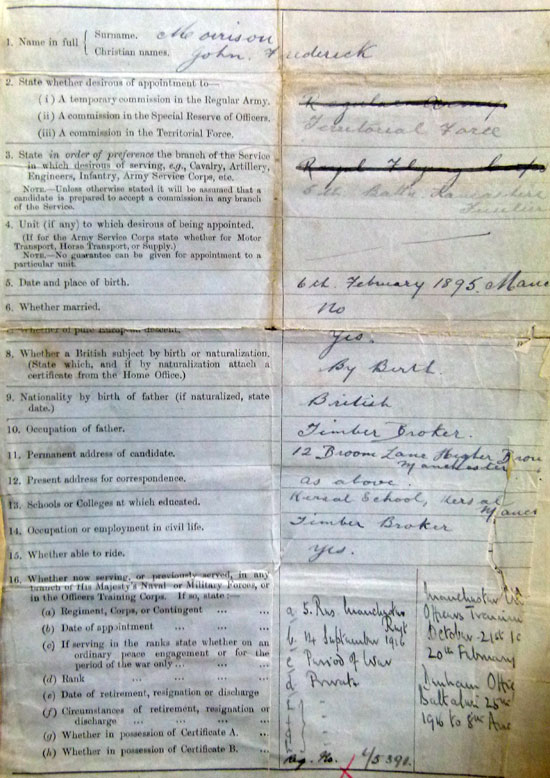 1. Name in full { Surname. Morrison
Christian names. John. Frederick
2. State whether desirous of appointment to—
(i) A temporary commission in the Regular Army. Regular Army
(ii) A commission in the Special Reserve of Officers. Territorial Force
(iii) A commission in the Territorial Force.
3. State in order of preference the branch of the Service
in which desirous of serving, e.g., Cavalry, Artillery, Royal Flying Corps
Engineers, Infantry, Army Service Corps, etc. 6th. Battn.
NOTE.—Unless otherwise stated it will be assumed that a
candidate is prepared to accept a commission in any branch
of the Service.
4. Unit (if any) to which desirous of being appointed.
(If for the Army Service Corps state whether for Motor
Transport, Horse Transport, or Supply.)
NOTE.—No guarantee can be given for appointment to a
particular unit.
5. Date and place of birth. 6th. February 1895. Manc
6. Whether married. No
7. Whether of pure European descent. Yes.
8. Whether a British subject by birth or naturalization.
(State which, and if by naturalization attach a By Birth.
certificate from the Home Office.)
9. Nationality by birth of father (if naturalized, state
date.) British
10. Occupation of father. Timber Broker.
11. Permanent address of candidate. 12 Broom Lane Higher Brou
Manchester
12. Present address for correspondence. as above.
13. Schools or Colleges at which educated. Kersal School, Kersal
Manch
14. Occupation or employment in civil life. Timber Broker
15. Whether able to ride. Yes.
16. Whether now serving, or previously served, in any
branch of His Majesty's Naval or Military Forces, or
in the Officers Training Corps. If so, state :—
(a) Regiment, Corps, or Contingent ... ... a 5. Res. Manchester
Regt
(b) Date of appointment ... ... b. 14 September 1916
(c) If serving in the ranks state whether on an
ordinary peace engagement or for the
period of the war only ... ... c Period of War
(d) Rank ... ... d Private
(e) Date of retirement, resignation or discharge
(f) Circumstances of retirement, resignation or
discharge ... ... ...
(g) Whether in possession of Certificate A. ...
(h) Whether in possession of Certificate B. ... Reg. No.
Manchester
Officers Training
October 21st
20th February
Officer
Battalion 25th
1916 to 8th